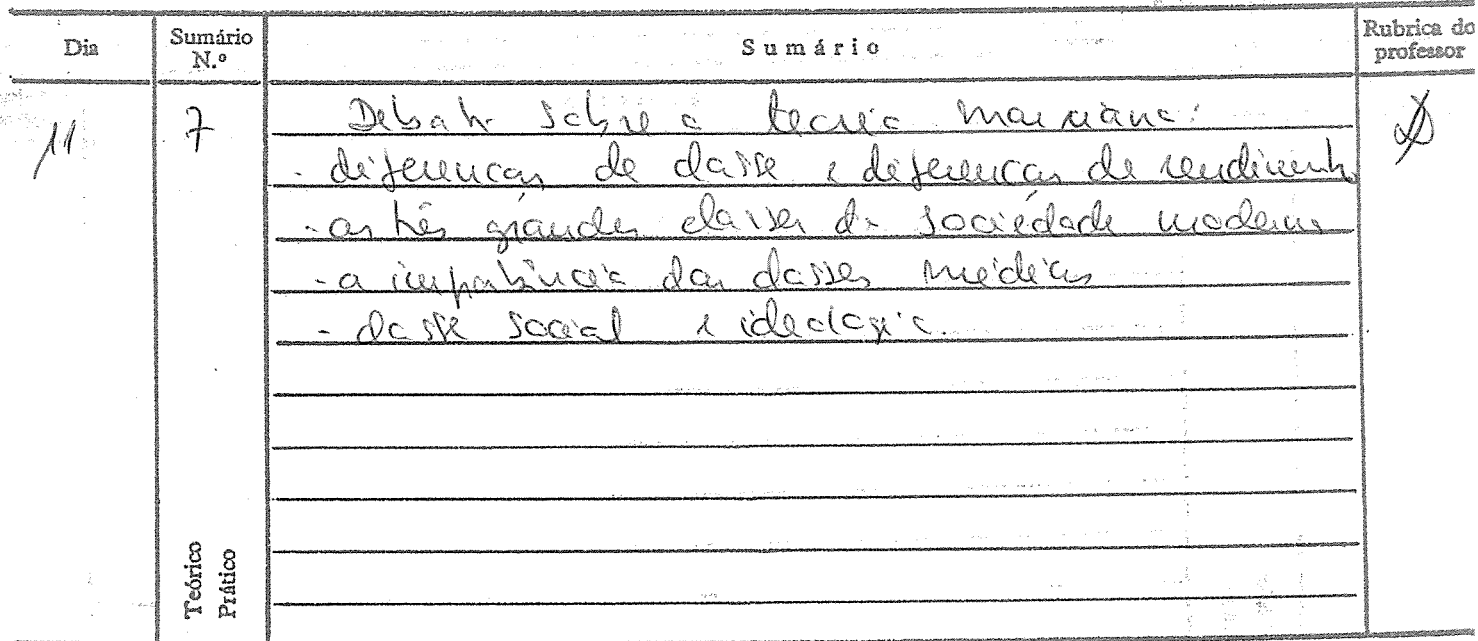 Dia
Sumário
N.º
Sumário
Rubrica do
professor
11
7
Debate sobre a teoria marxiana:
- diferenças de classe e diferenças de rendimento
- as três grandes classes da sociedade moderna
- a importância das classes médias
- classe social e ideologia.
Teórico
Prático